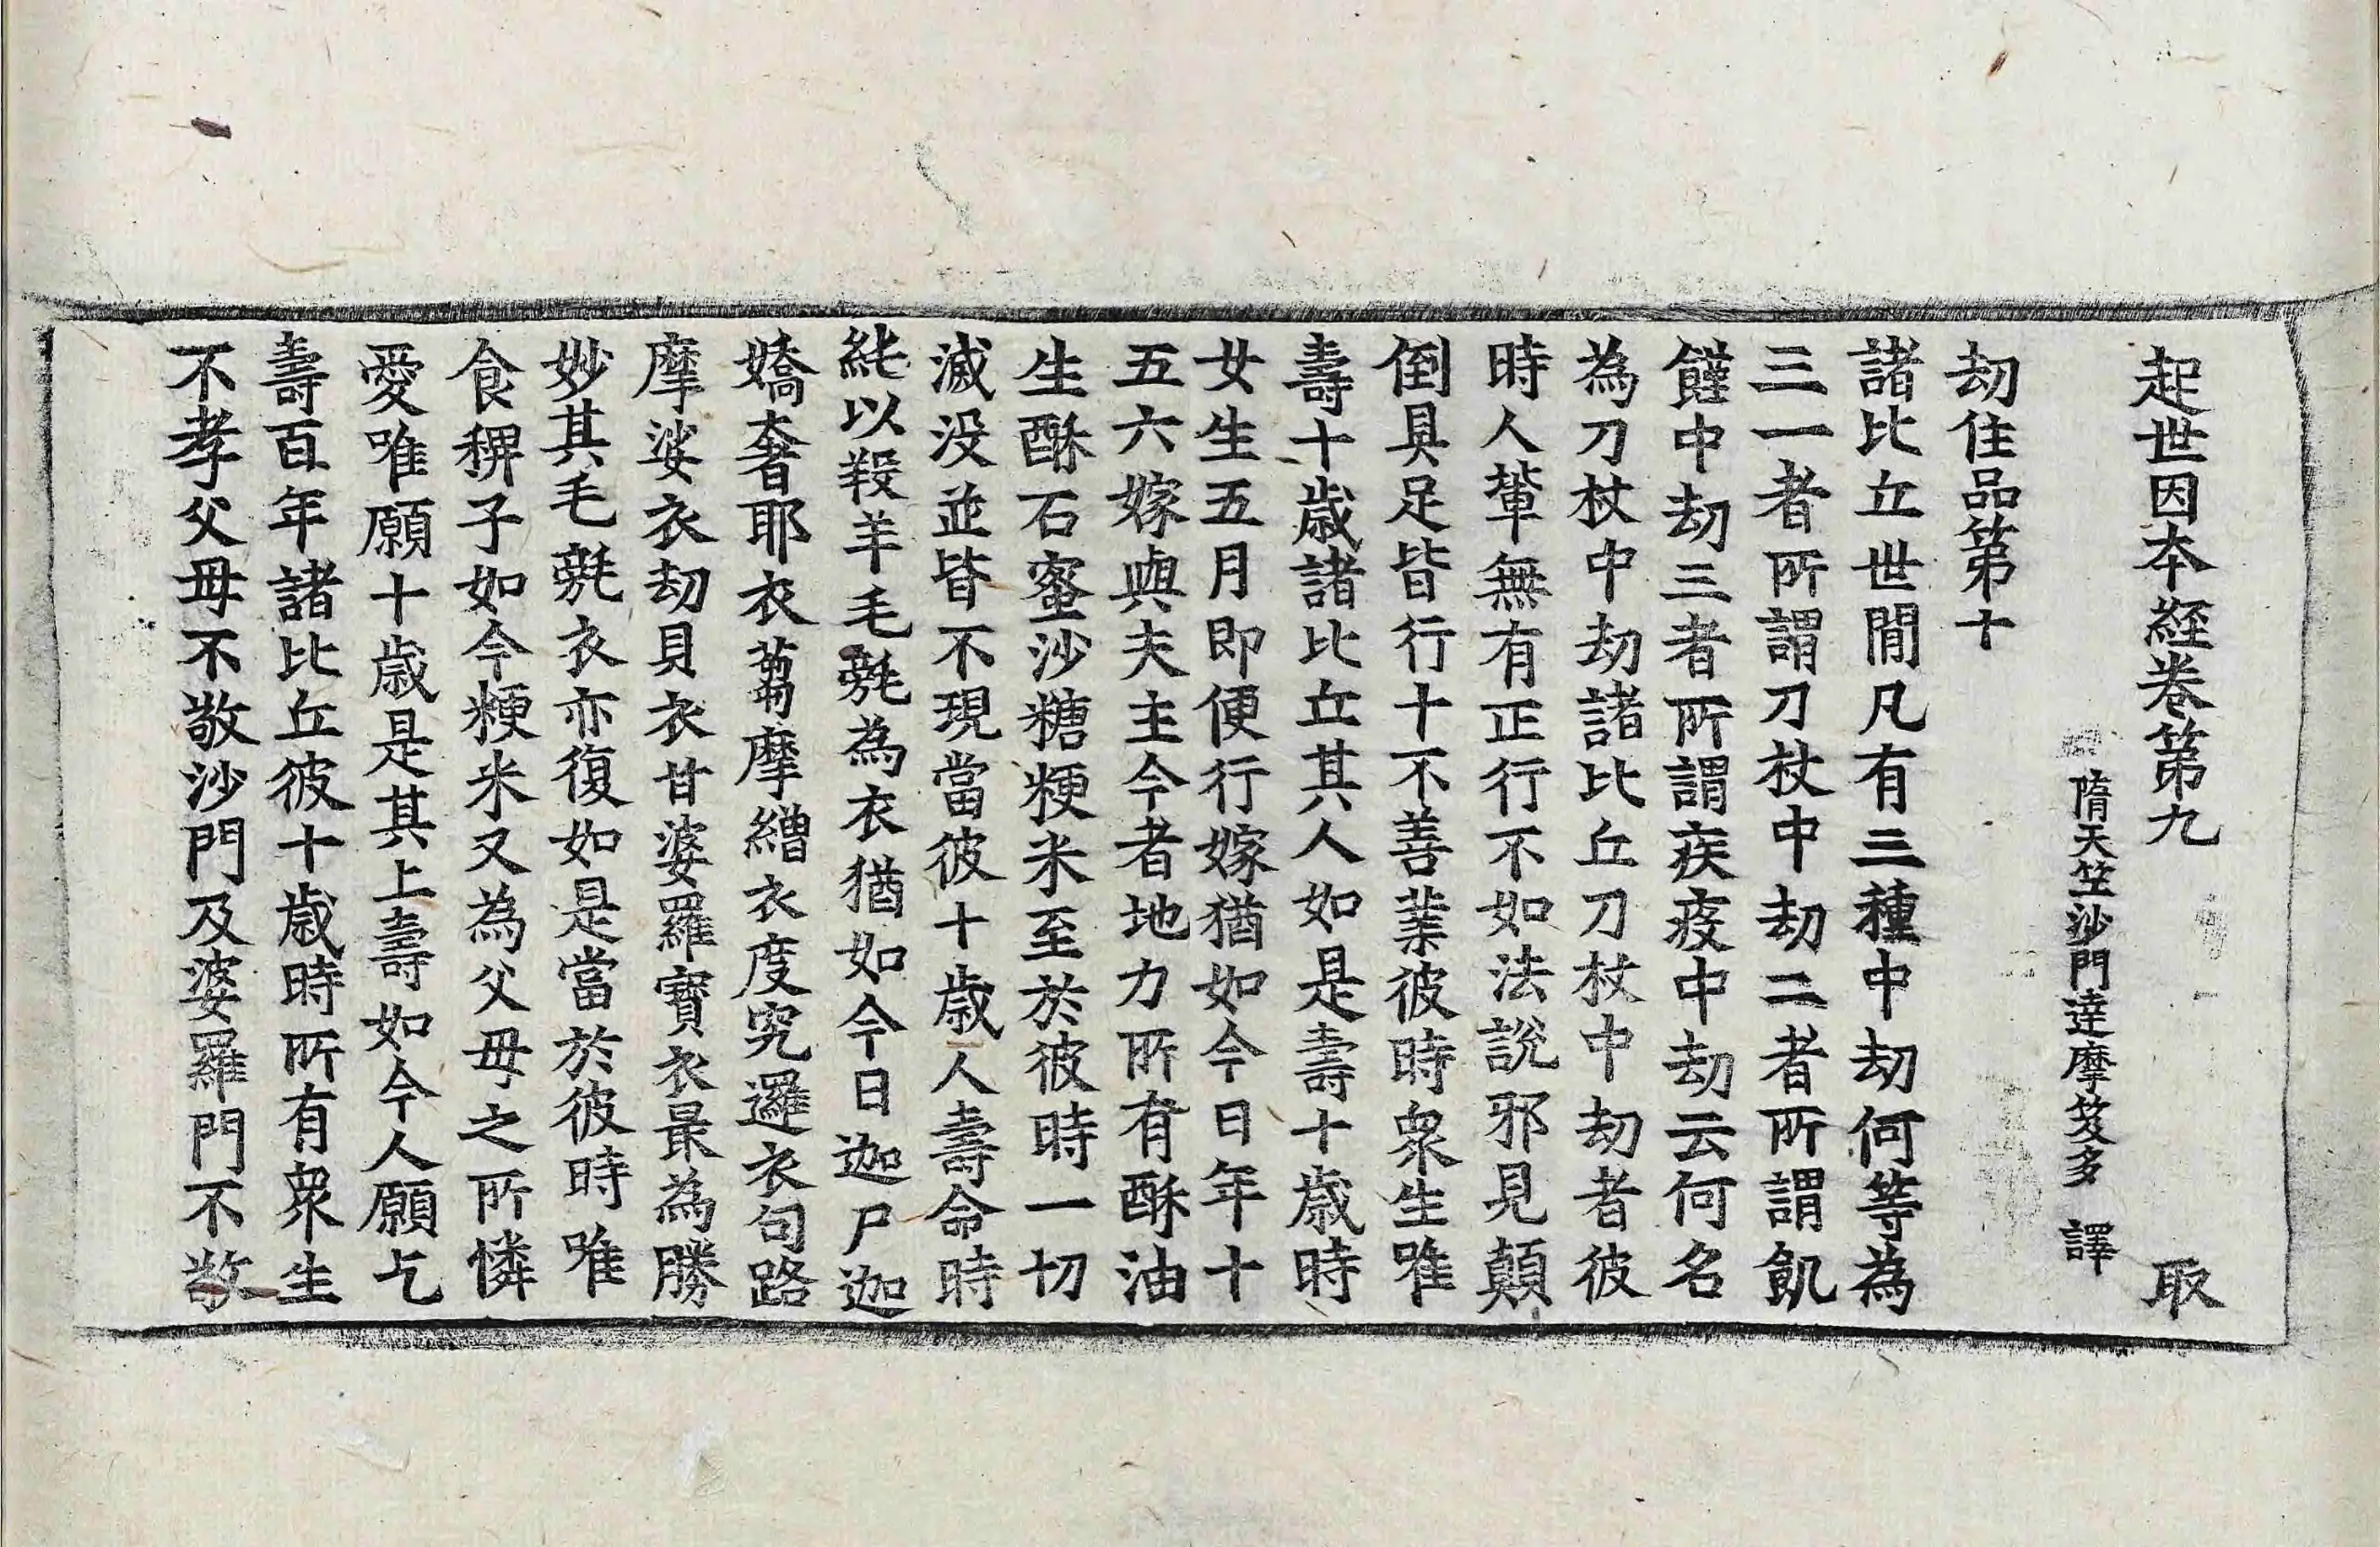 起世因本經卷第九 取
隋天竺沙門達摩笈多 譯
劫住品第十
諸比丘世間凡有三種中劫何等為
三一者所謂刀杖中劫二者所謂飢
饉中劫三者所謂疾疫中劫云何名
為刀杖中劫諸比丘刀杖中劫者彼
時人輩無有正行不如法說邪見顛
倒具足皆行十不善業彼時眾生唯
壽十歲諸比丘其人如是壽十歲時
女生五月即便行嫁猶如今日年十
五六嫁與夫主今者地力所有酥油
生酥石蜜沙糖粳米至於彼時一切
滅没並皆不現當彼十歲人壽命時
純以羖羊毛毾為衣猶如今日迦尸迦
嬌奢耶衣芻摩繒衣度究邏衣句路
摩娑衣劫貝衣甘婆羅寶衣最為勝
妙其毛毾衣亦復如是當於彼時唯
食稗子如今粳米又為父母之所憐
愛唯願十歲是其上壽如今人願乞
壽百年諸比丘彼十歲時所有眾生
不孝父母不敬沙門及婆羅門不敬